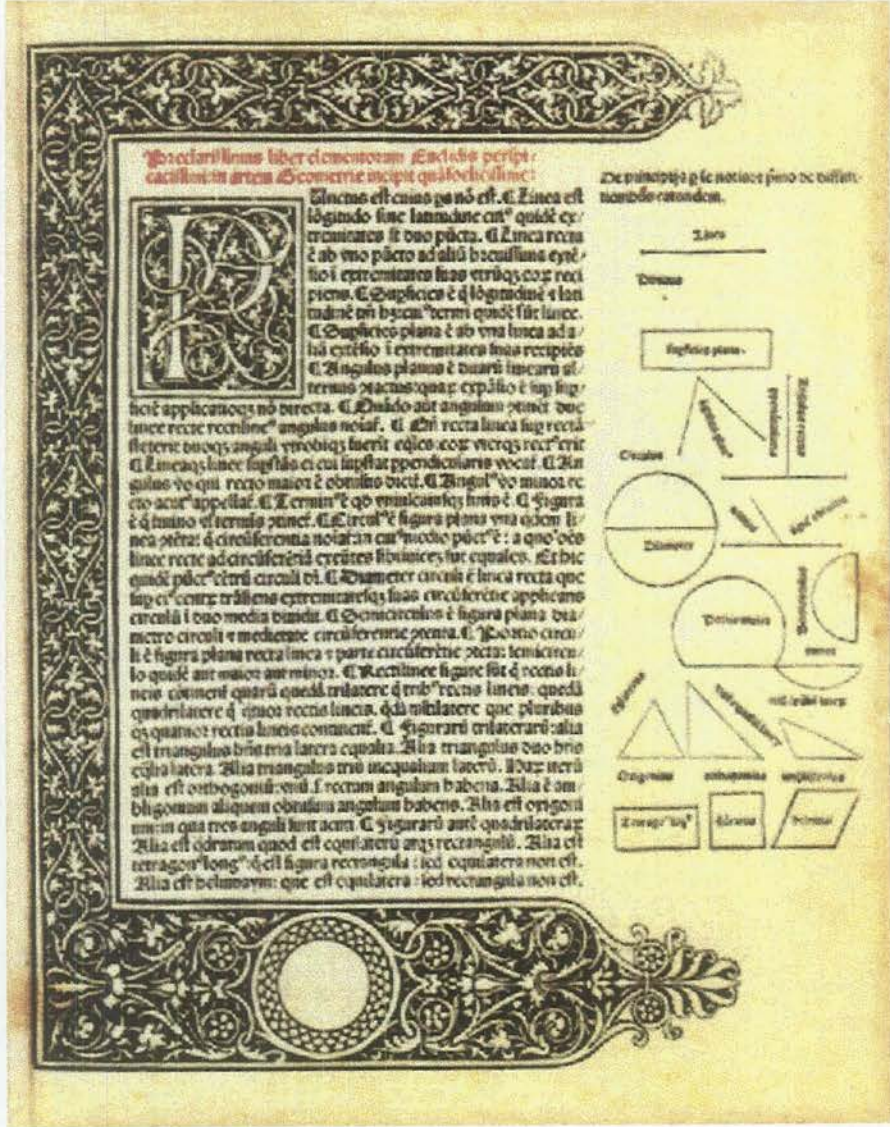 Preclarissimus liber elementorum Euclidis perspi/
cacissimi: in artem Geometrie incipit quãfoelicissime:
Punctus est cuius ps nõ est. ¶ Linea est
lõgitudo sine latitudine cuiꝰ quidẽ ex/
tremitates sũt duo pũcta. ¶ Linea recta
ẽ ab vno pũcto ad aliũ breuissima extẽ/
sio i extremitates suas vtrũqꝫ eoꝝ reci
piens. ¶ Supficies ẽ q̃ lõgitudinẽ ⁊ lati
tudinẽ tm̃ hꝫ: cuiꝰ termi quidẽ sũt linee.
¶ Supficies plana ẽ ab vna linea ad a/
liã extẽsio i extremitates suas recipiẽs
¶ Angulus planus ẽ duarũ linearũ al/
ternus ꝯtactus: quaꝝ expãsio ẽ sup sup/
ficiẽ applicatioqꝫ nõ directa. ¶ Quãdo aut angulum ꝯtinet due
linee recte rectilineꝰ angulus noiat̃. ¶ Qñ recta linea sup rectã
steterit duoqꝫ anguli vtrobiqꝫ fuerit eq̃les: eoꝝ vterqꝫ rectꝰ erit
¶ Lineaqꝫ linee supstãs ei cui supstat ppendicularis vocat̃. ¶ An
gulus vo qui recto maior ẽ obtusus dicit̃. ¶ Angulꝰ vo minor re
cto acutꝰ appellat̃. ¶ Terminꝰ ẽ qd vniuscuiusqꝫ finis ẽ. ¶ Figura
ẽ q̃ tmino vl terminis ꝯtinet̃. ¶ Circulꝰ ẽ figura plana vna qdem li/
nea ꝯtẽta: q̃ circũferentia noiat̃: in cuiꝰ medio pũctꝰ ẽ: a quo oẽs
linee recte ad circũferẽtiã exeũtes sibiinuicẽ sũt equales. Et hic
quidẽ pũctꝰ cẽtrũ circuli dr̃. ¶ Diameter circuli ẽ linea recta que
sup eiꝰ centꝝ trãsiens extremitatesqꝫ suas circũferẽtie applicans
circulũ i duo media diuidit. ¶ Semicirculus ẽ figura plana dia/
metro circuli ⁊ medietate circũferentie ꝯtenta. ¶ Portio circu/
li ẽ figura plana recta linea ⁊ parte circũferẽtie ꝯtẽta: semicircu/
lo quidẽ aut maior aut minor. ¶ Rectilinee figure sũt q̃ rectis li/
neis cõtinent̃ quarũ quedã trilatere q̃ tribꝰ rectis lineis: quedã
quadrilatere q̃ q̃tuor rectis lineis. qdã mltilatere que pluribus
qꝫ quatuor rectis lineis continent̃. ¶ Figurarũ trilaterarũ: alia
est triangulus hñs tria latera equalia. Alia triangulus duo hñs
eq̃lia latera. Alia triangulus triũ inequalium laterũ. Haꝝ iterũ
alia est orthogoniũ: vnũ .s. rectum angulum habens. Alia ẽ am/
bligonium aliquem obtusum angulum habens. Alia est oxigoni
um: in qua tres anguli sunt acuti. ¶ Figurarũ autẽ quadrilateraꝝ
Alia est q̃dratum quod est equilaterũ atqꝫ rectangulũ. Alia est
tetragonꝰ longꝰ: q̃ est figura rectangula: sed equilatera non est.
Alia est helmuaym: que est equilatera: sed rectangula non est.
De principijs p se notis: ⁊ pmo de diffini/
tionibus earandem.
Linea
Punctus
Supficies plana.
Circulus
Diameter